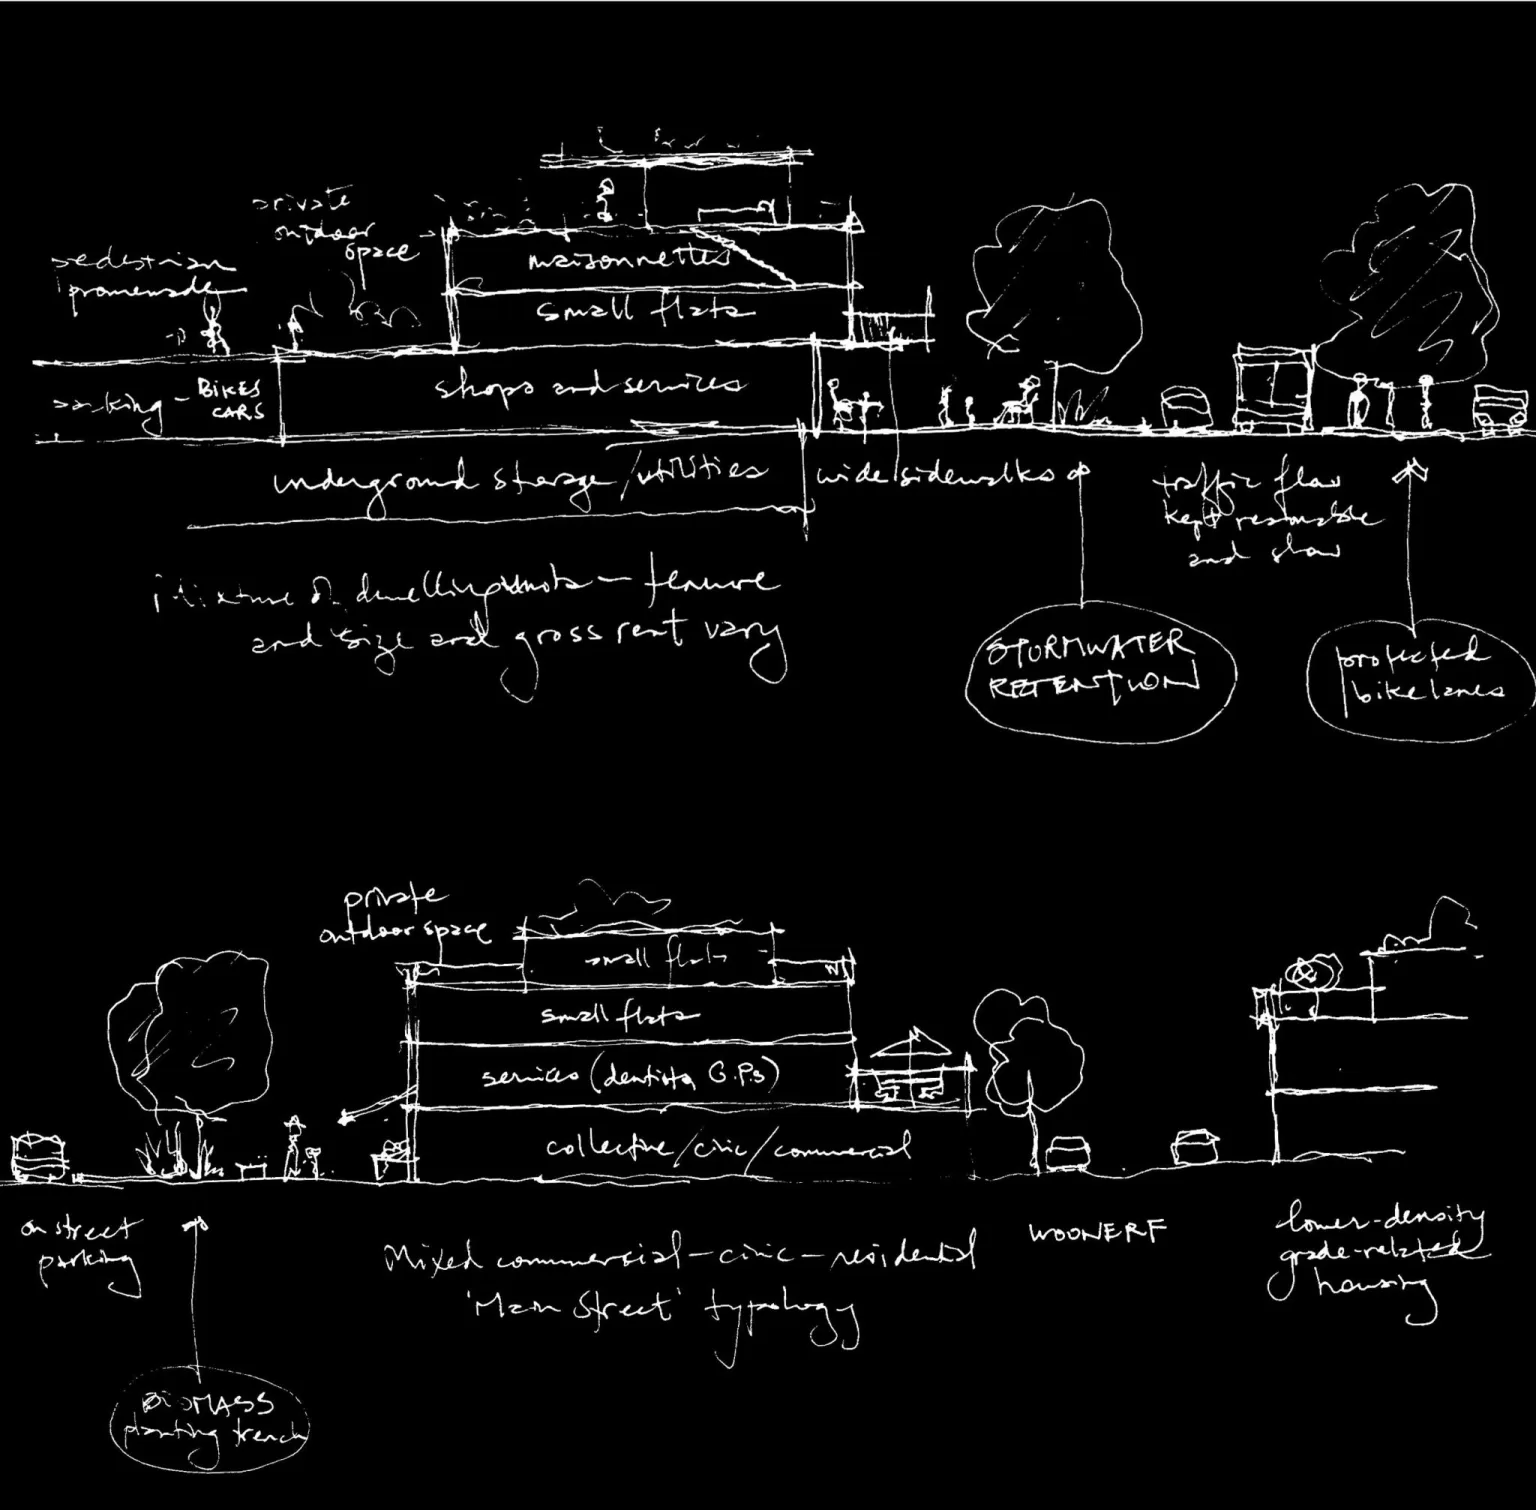 private
outdoor
space
pedestrian
promenade
maisonnettes
small flats
parking - BIKES
CARS
shops and services
underground storage/utilities
wide sidewalks
traffic flow
kept reasonable
and slow
Mixture of dwelling units - tenure
and size and gross rent vary
STORMWATER
RETENTION
protected
bike lanes
private
outdoor space
small flats
small flats
services (dentists, G.P.s)
collective/civic/commercial
on street
parking
Mixed commercial-civic-residential
'Main Street' typology
WOONERF
lower-density
grade-related
housing
BIOMASS
planting trench